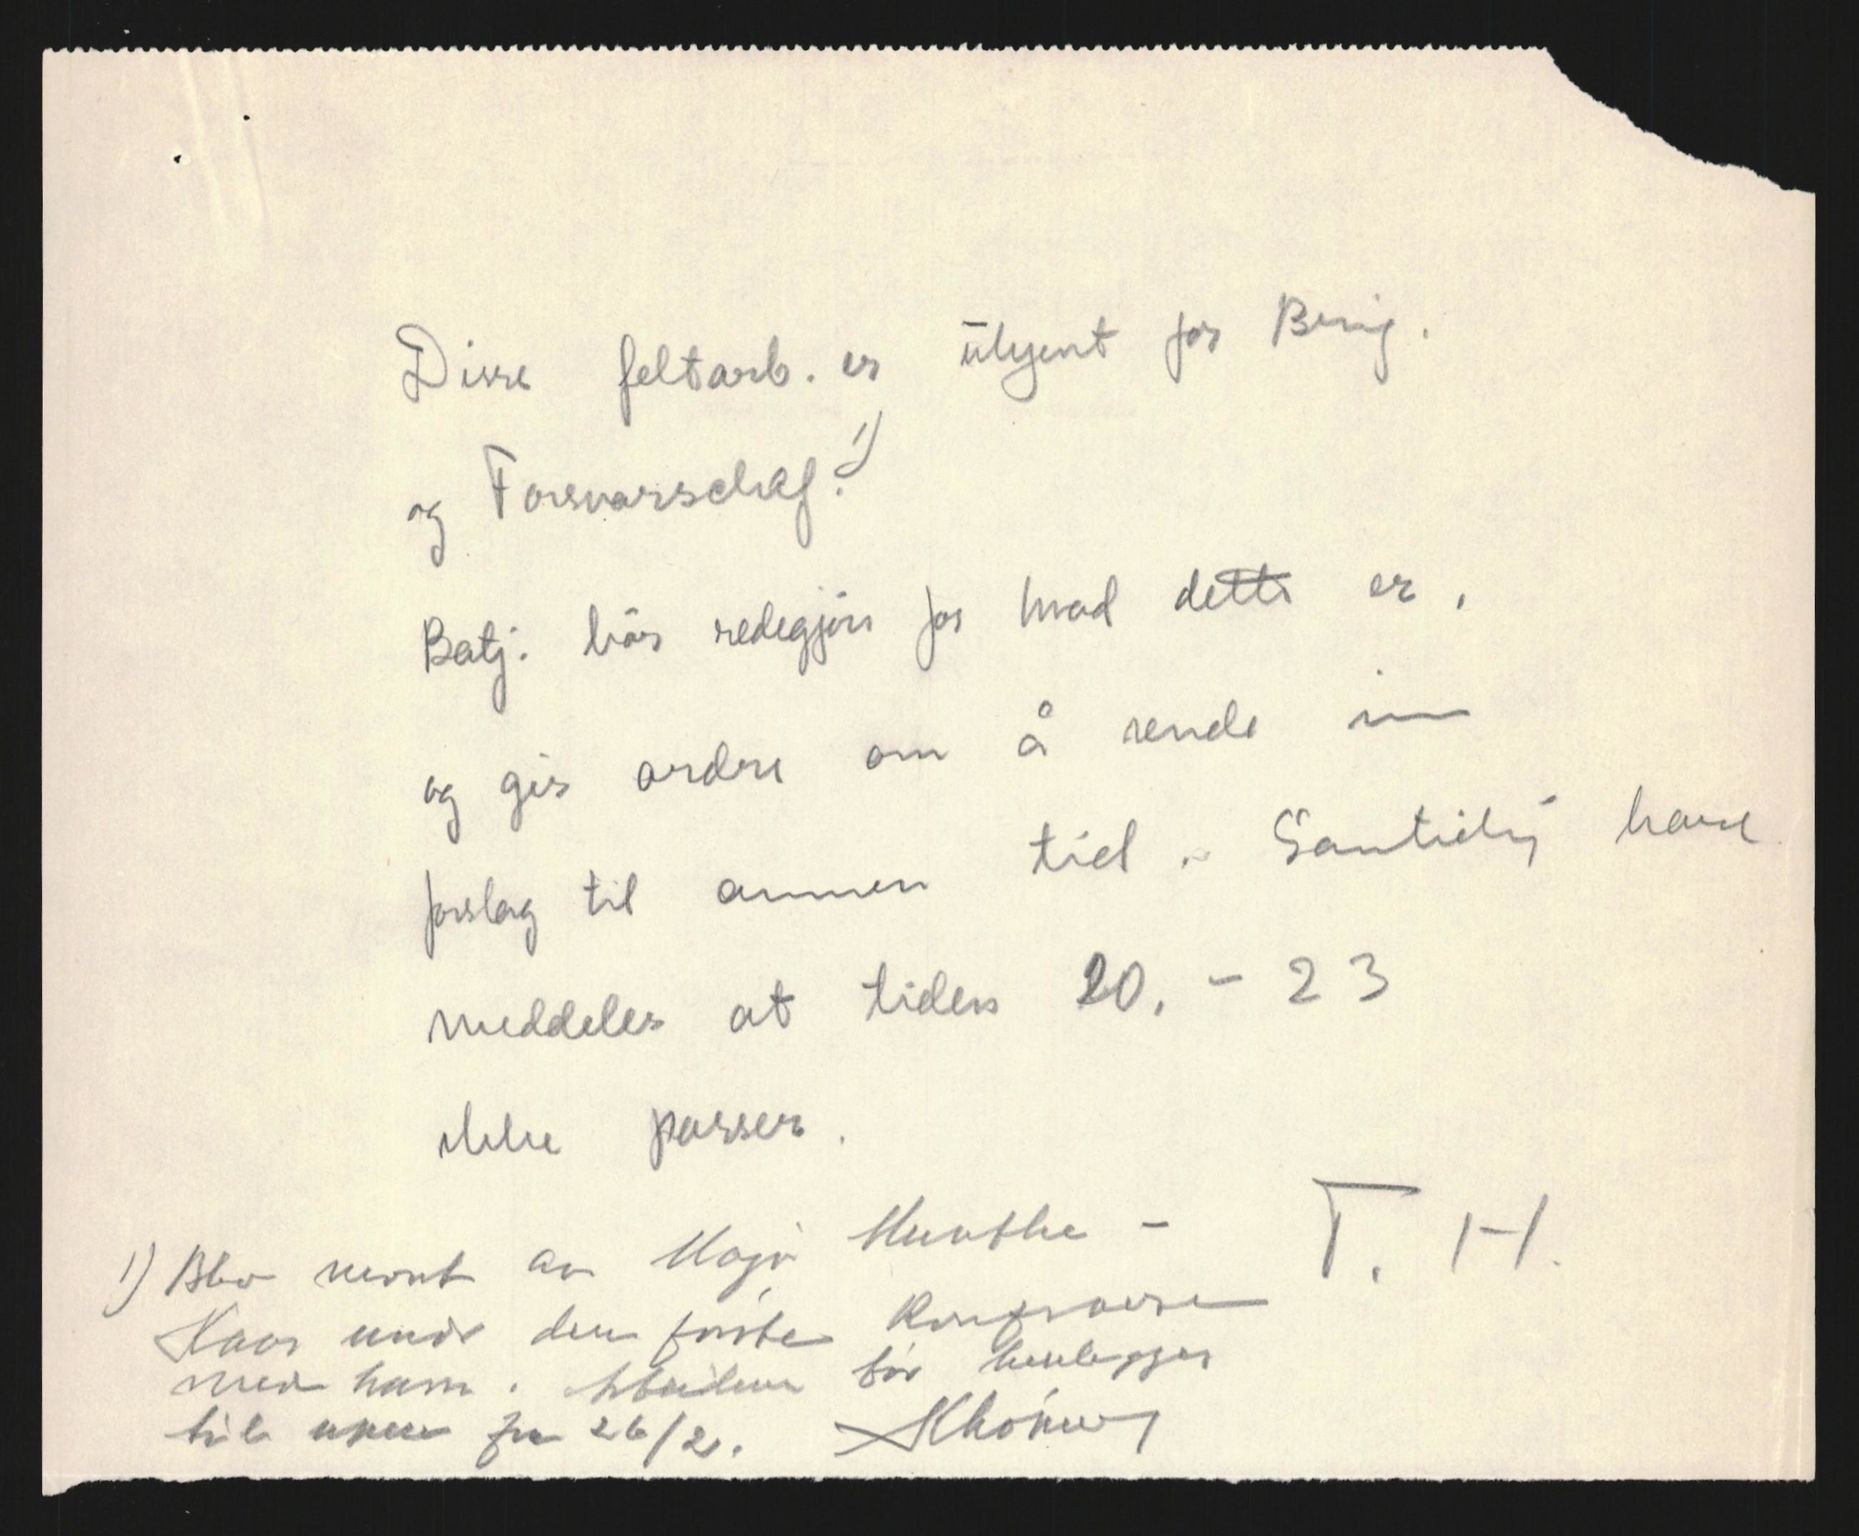 Disse feltarb. er ukjent for Brig.
og Forsvarssekj.1)
Batj. bör redegjöre for hvad dette er,
og gis ordre om å sende inn
forslag til annen tid. Samtidig
meddeles at tiden 20. - 23
ikke passer.
T. H.
1) Blev nevnt av Major Munthe -
Kaas under den förste Konferanse
med ham. Arbeidene bör henlegges
til uken fra 26/2.